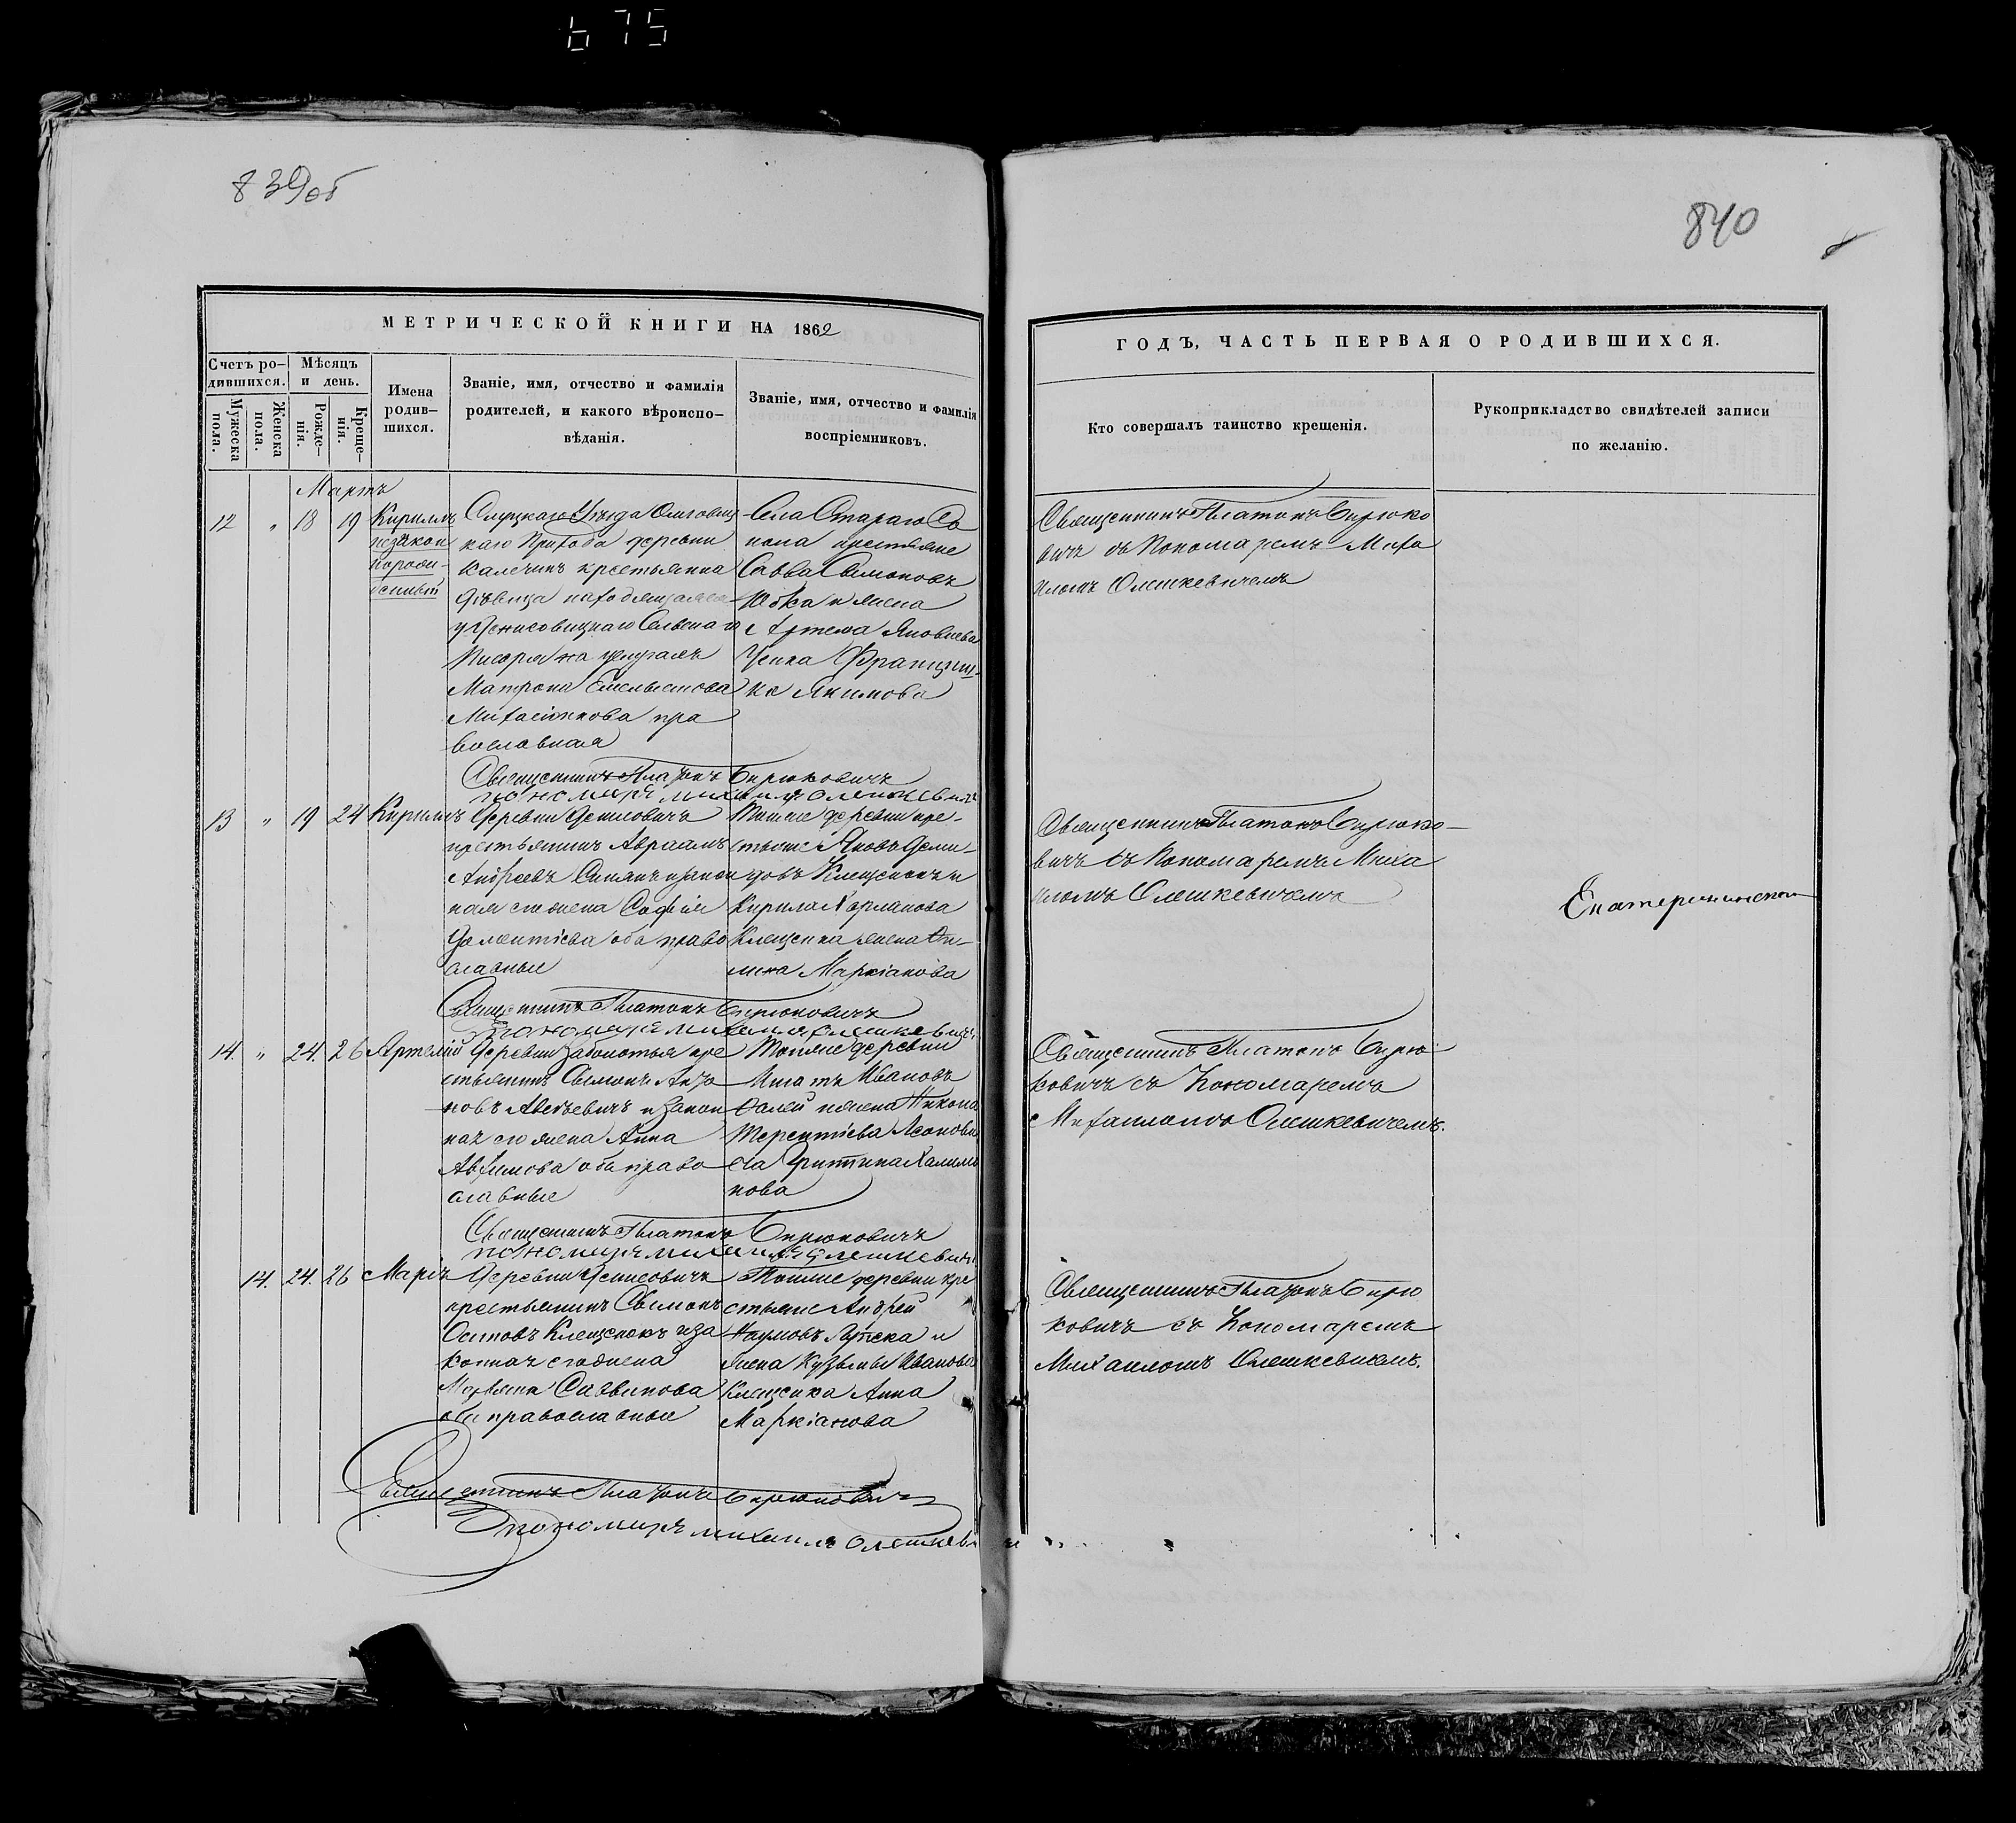 675
839об
840
МЕТРИЧЕСКОЙ КНИГИ НА 1862
ГОДЪ, ЧАСТЬ ПЕРВАЯ О РОДИВШИХСЯ.
Счетъ ро-
дившихся.
Мужеска
пола.
Женска
пола.
Мѣсяцъ
и день.
Рожде-
нія.
Креще-
нія.
Имена
родив-
шихся.
Званіе, имя, отчество и фамилія
родителей, и какого вѣроиспо-
вѣданія.
Званіе, имя, отчество и фамилія
воспріемниковъ.
Кто совершалъ таинство крещенія.
Рукоприкладство свидѣтелей записи
по желанію.
Мартъ
12 " 18 19
Кириллъ
незакон
норож-
денный
Слуцкаго Уѣзда
каго Прихода деревни
крестьянка
дѣвица находящаяся
у Денисовицкаго Сельскаго
Писаря на
Матрона
пра
вославная
Села Стараго
крестьяне
Савва Симоновъ
жена
Артема Яковлева
Францишка
Якимова
Священникъ Платонъ Бирюко
вичъ съ Пономаремъ Миха
иломъ Олешкевичемъ
Священникъ Платонъ Бирюковичъ
пономарь михаилъ олешкевичъ
13 " 19 24 Кириллъ
Деревни Денисовичъ
крестьянинъ Авраамъ
Андреевъ
ная его жена Софія
оба право
славные
Тоиже деревни кре-
стьяне Яковъ
довъ Клещенокъ и
Кирила Харланова
Клещенка жена
Маркіанова
Священникъ Платонъ Бирюко-
вичъ съ Пономаремъ Миха
иломъ Олешкевичемъ
Екатерининской
Священникъ Платонъ Бирюковичъ
Пономарь михаилъ олешкевичъ
14. " 24. 26 Артемій
Деревни Заболотья кре
стьянинъ Симонъ
новъ и закон
ная его жена Анна
оба право
славные
Тоиже деревни
Игнатъ Ивановъ
и жена
Терентіева
нова
Священникъ Платонъ Бирю-
ковичъ съ Пономаремъ
Михаиломъ Олешкевичемъ.
Священникъ Платонъ Бирюковичъ
пономарь михаилъ олешкевичъ
14. 24. 26 Марія
Деревни Денисовичъ
крестьянинъ Симонъ
Осиповъ Клещенокъ и за
конная его жена
Саввинова
оба православные
Тоиже деревни кре
стьяне Андрей
Наумовъ и
жена Кузьмы Иванова
Клещенка Анна
Маркіанова
Священникъ Платонъ Бирю
ковичъ съ Пономаремъ
Михаиломъ Олешкевичемъ.
Священникъ Платонъ Бирюковичъ
Пономарь михаилъ олешкевичъ